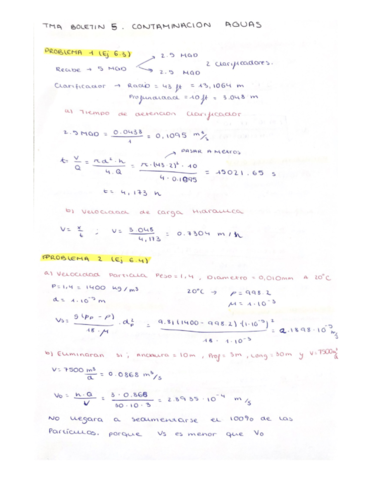 TMA BOLETIN 5. CONTAMINACION AGUAS
PROBLEMA 1 (Ej 6.3)
Recibe → 5 MGD
2.5 MGD
2.5 MGD
2 Clarificadores.
Clarificador → Radio = 43 ft = 13,1064 m
Profundidad = 10 ft = 3.048 m
a) Tiempo de detención Clarificador
2.5 MGD = 0.0438 / 1 = 0,1095 m³/s
PASAR A METROS
t = V/Q = π d² · h / 4 · Q = π · (43.2)² · 10 / 4 · 0.1095 = 15021.65 s
t = 4,173 h
b) Velocidad de carga hidráulica
V = 3.048 / 4,173 = 0.7304 m/h
PROBLEMA 2 (Ej 6.4)
a) Velocidad Partícula Peso = 1.4, Diámetro = 0,010mm a 20°C
ρ = 1.4 = 1400 kg/m³
20°C → ρ = 998.2
d = 1·10⁻⁵ m
μ = 1·10⁻³
Vs = g(ρp - ρ) / 18·μ · d²p = 9.81(1400 - 998.2)(1·10⁻⁵)² / 18 · 1·10⁻³ = 2.1898·10⁻⁵
V = 7500 m³/d = 0.0868 m³/s
No llegara a sedimentarse el 100% de las
Partículas. porque Vs es menor que Vo